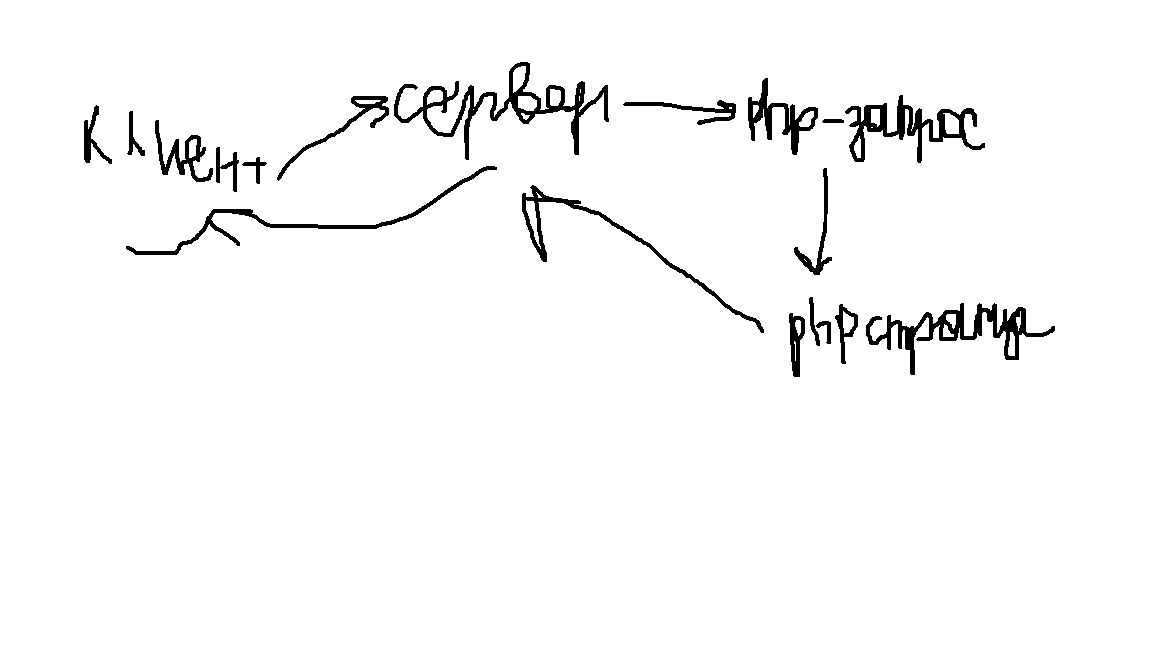 клиент
сервер
php-запрос
php страница